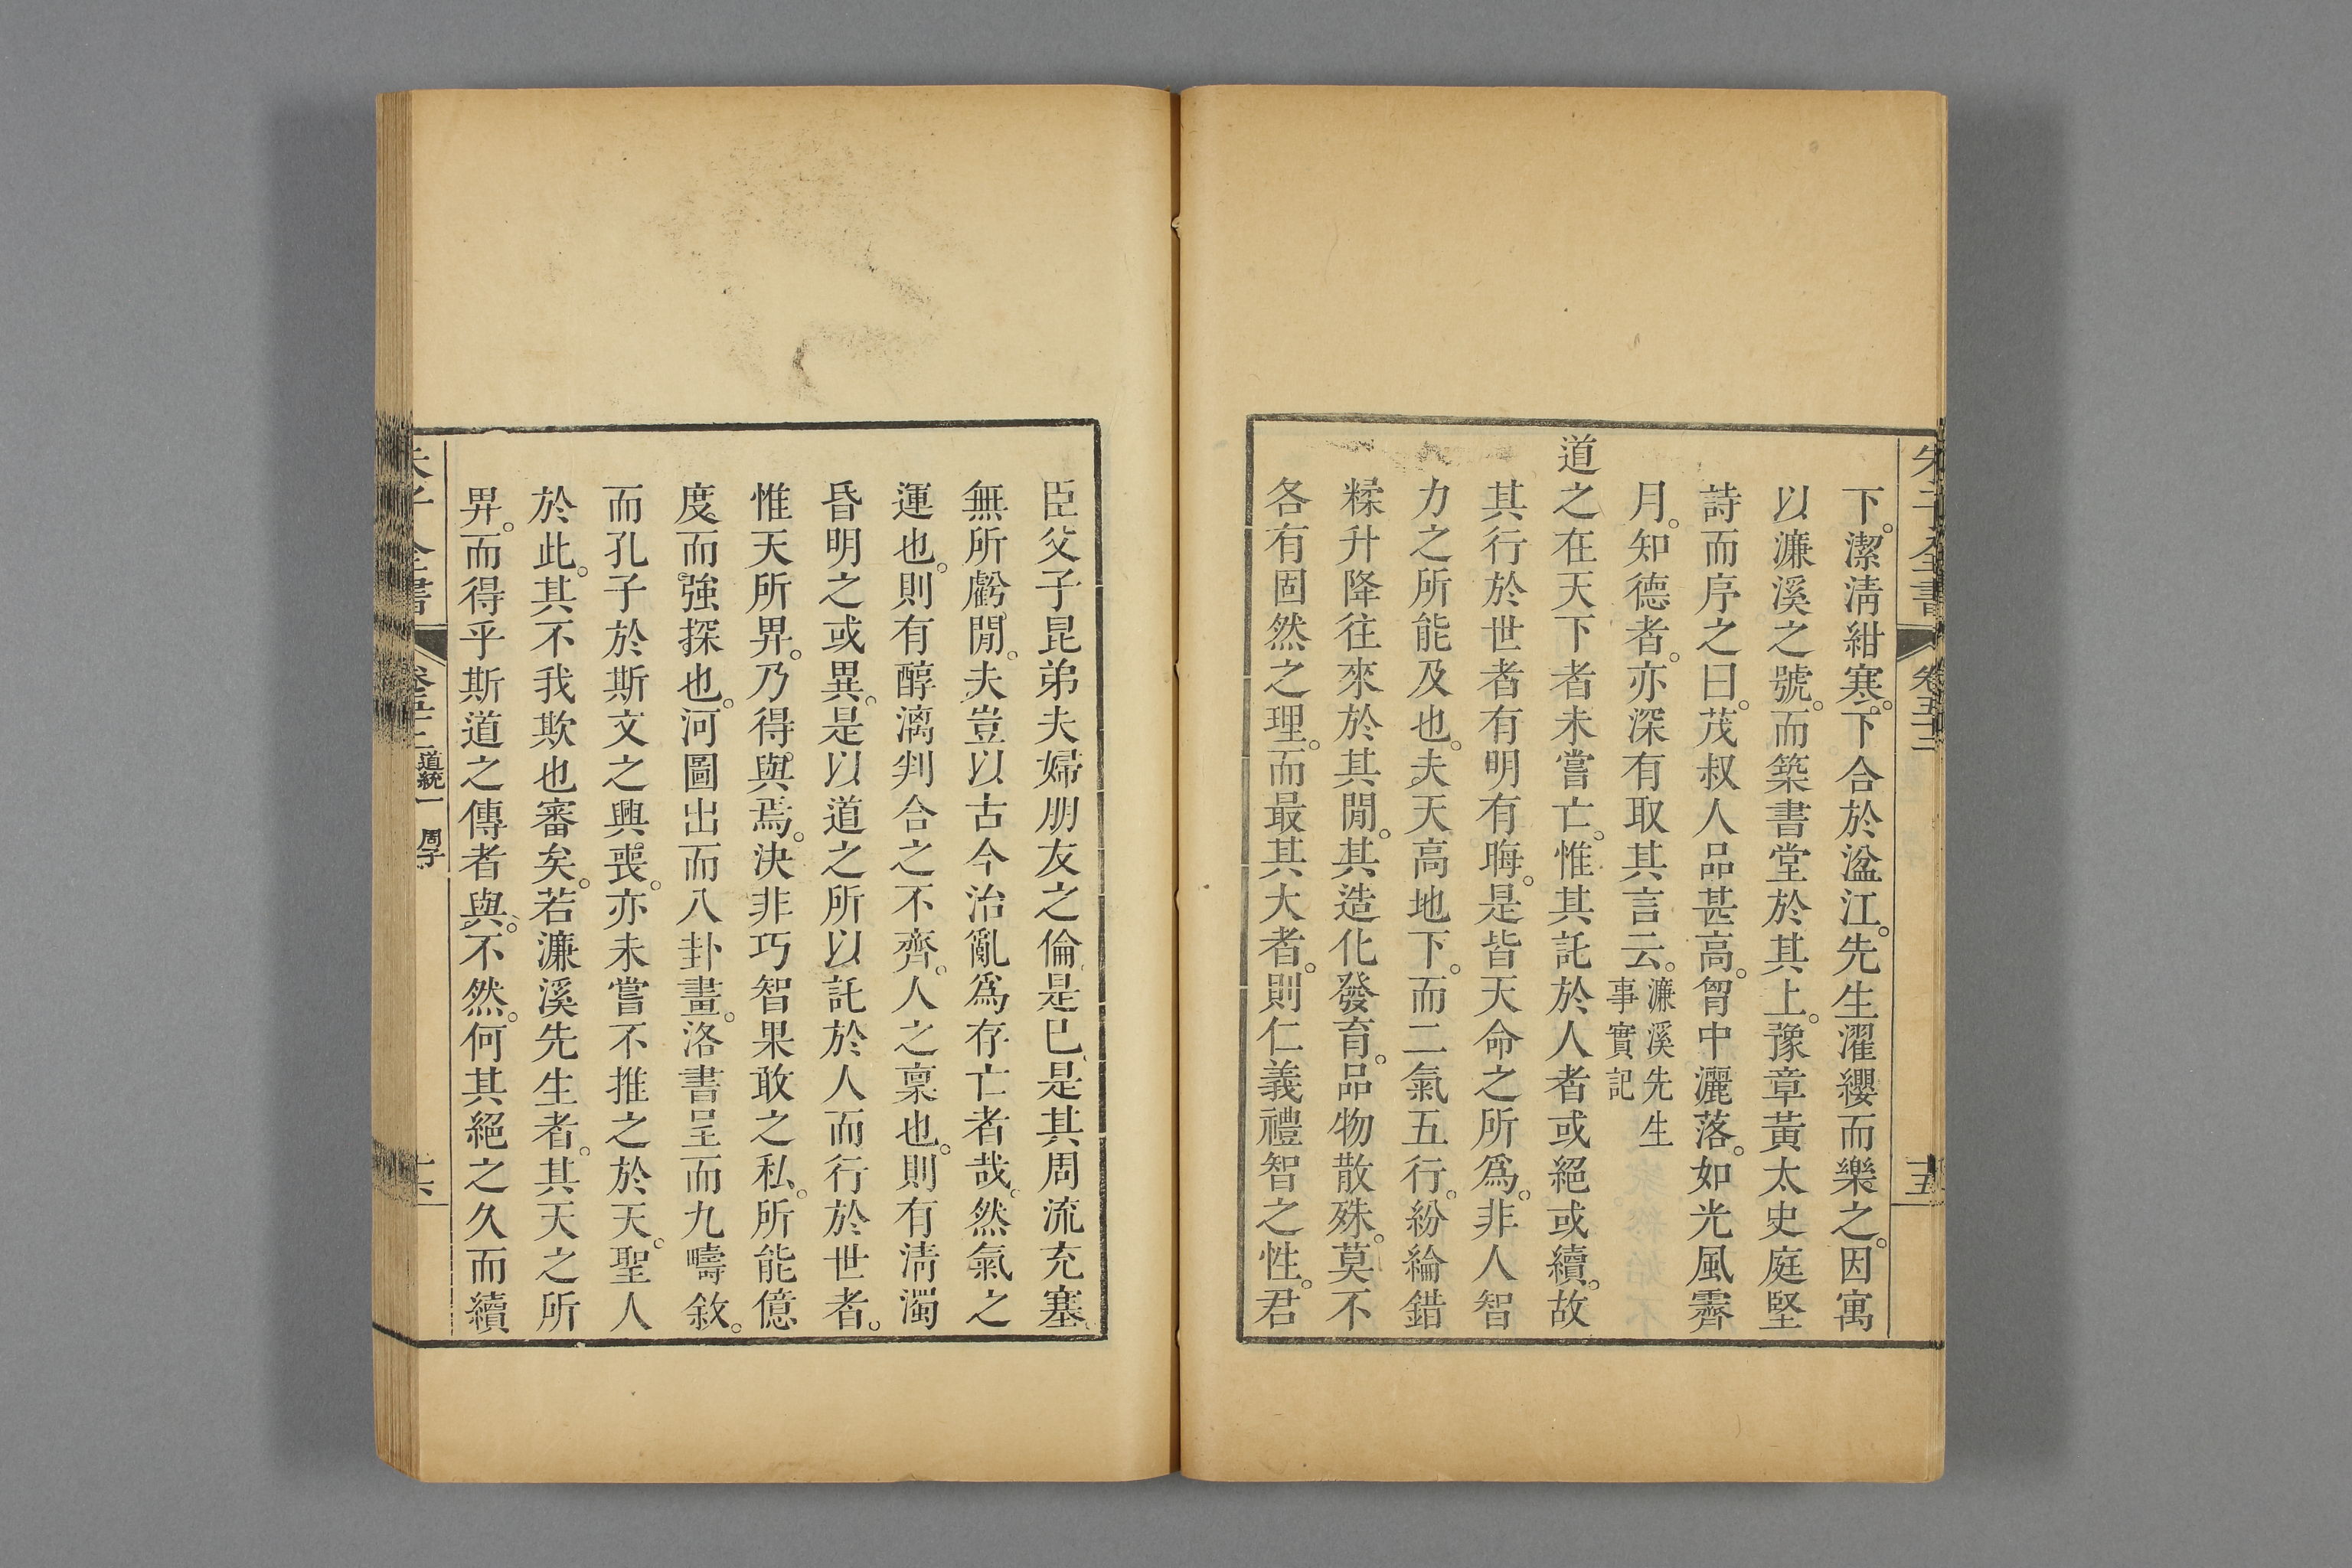 朱子全書 卷五十二 十五
下。潔淸紺寒。下合於湓江。先生濯纓而樂之。因寓
以濂溪之號。而築書堂於其上。豫章黃太史庭堅
詩而序之曰。茂叔人品甚高。胷中灑落。如光風霽
月。知德者。亦深有取其言云。濂溪先生
事實記
道之在天下者未嘗亡。惟其託於人者或絕或續。故
其行於世者有明有晦。是皆天命之所爲。非人智
力之所能及也。夫天高地下。而二氣五行。紛綸錯
糅升降往來於其閒。其造化發育。品物散殊。莫不
各有固然之理。而最其大者。則仁義禮智之性。君
臣父子昆弟夫婦朋友之倫是已、是其周流充塞。
無所虧閒。夫豈以古今治亂爲存亡者哉。然氣之
運也。則有醇漓判合之不齊。人之稟也。則有淸濁
昏明之或異。是以道之所以託於人而行於世者。
惟天所畀。乃得與焉。決非巧智果敢之私。所能億
度而強探也。河圖出而八卦畫。洛書呈而九疇敘。
而孔子於斯文之興喪。亦未嘗不推之於天。聖人
於此。其不我欺也審矣。若濂溪先生者。其天之所
畀。而得乎斯道之傳者與。不然。何其絕之久而續
子全書 卷五十二 道統一 周子